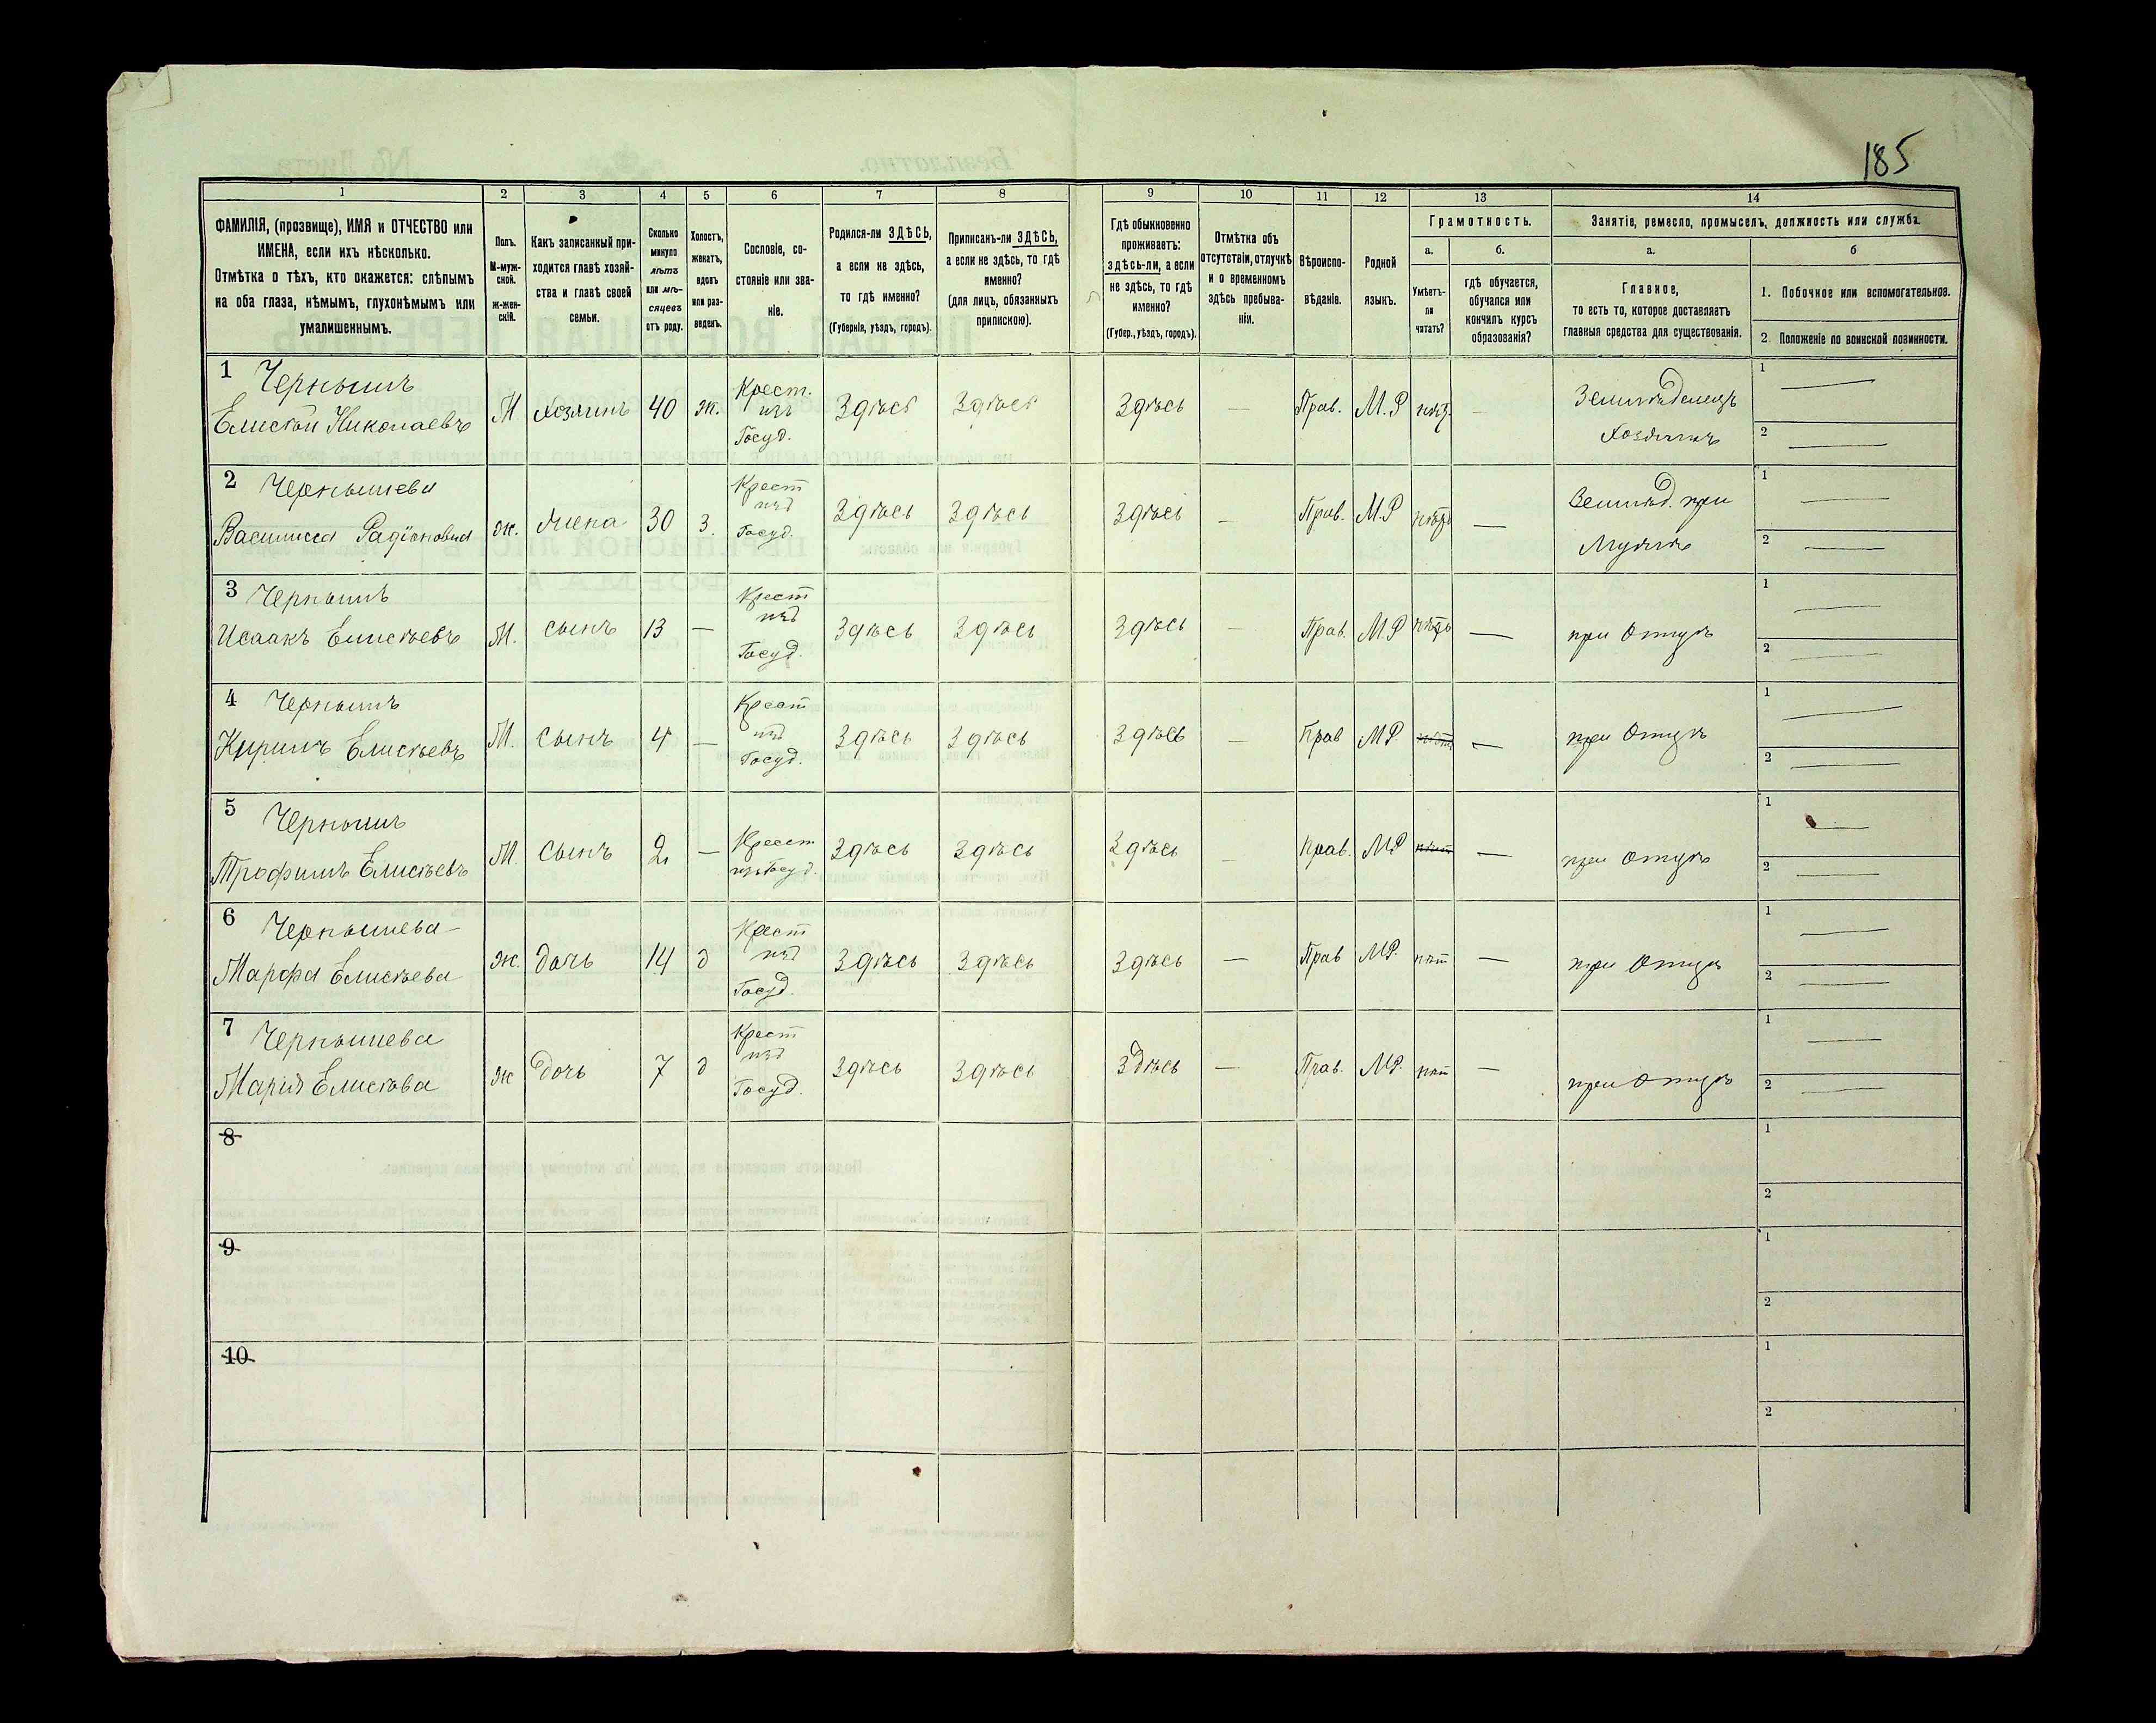 185
1 2 3 4 5 6 7 8 9 10 11 12 13 14
ФАМИЛІЯ, (прозвище), ИМЯ и ОТЧЕСТВО или
ИМЕНА, если ихъ нѣсколько.
Отмѣтка о тѣхъ, кто окажется: слѣпымъ
на оба глаза, нѣмымъ, глухонѣмымъ или
умалишеннымъ.
Полъ.
М-муж-
ской.
Ж-жен-
скій.
Какъ записанный при-
ходится главѣ хозяй-
ства и главѣ своей
семьи.
Сколько
минуло
лѣтъ
или мѣ-
сяцевъ
отъ роду.
Холостъ,
женатъ,
вдовъ
или раз-
веденъ.
Сословіе, со-
стояніе или зва-
ніе.
Родился-ли ЗДѢСЬ,
а если не здѣсь,
то гдѣ именно?
(Губернія, уѣздъ, городъ).
Приписанъ-ли ЗДѢСЬ,
а если не здѣсь, то гдѣ
именно?
(для лицъ, обязанныхъ
припискою).
Гдѣ обыкновенно
проживаетъ:
здѣсь-ли, а если
не здѣсь, то гдѣ
именно?
(Губер., уѣздъ, городъ).
Отмѣтка объ
отсутствіи, отлучкѣ
и о временномъ
здѣсь пребыва-
ніи.
Вѣроиспо-
вѣданіе.
Родной
языкъ.
Грамотность.
а.
Умѣетъ-
ли
читать?
б.
гдѣ обучается,
обучался или
кончилъ курсъ
образованія?
Занятіе, ремесло, промыселъ, должность или служба.
а.
Главное,
то есть то, которое доставляетъ
главныя средства для существованія.
б
1. Побочное или вспомогательное.
2 Положеніе по воинской повинности.
1 Чернышъ
Елисѣй Николаевъ М Хозяинъ 40 ж. Крест. изъ Госуд. Здѣсь Здѣсь Здѣсь — Прав. М.Р нѣт — Земледѣлецъ Хозяинъ
1 —
2 —
2 Чернышева
Василиса Радіонова ж. Жена 30 З. Крест изъ Госуд. Здѣсь Здѣсь Здѣсь — Прав. М.Р нѣтъ — Землѣд. при Мужѣ
1 —
2 —
3 Чернышъ
Исаакъ Елисѣевъ М. сынъ 13 — Крест изъ Госуд. Здѣсь Здѣсь Здѣсь — Прав. М.Р нѣтъ — при Отцѣ
1 —
2 —
4 Чернышъ
Кирилъ Елисѣевъ М. сынъ 4 — Крест изъ Госуд. Здѣсь Здѣсь Здѣсь — Прав МР. нѣт — при Отцѣ
1 —
2 —
5 Чернышъ
Трофимъ Елисѣевъ М. сынъ 2 — Крест изъ Госуд. Здѣсь Здѣсь Здѣсь — Прав. МР нѣт — при отцѣ
1 —
2 —
6 Чернышева
Марфа Елисѣева ж. дочь 14 д Крест изъ Госуд. Здѣсь Здѣсь Здѣсь — Прав МР. нѣт — при Отцѣ
1 —
2 —
7 Чернышева
Марія Елисѣева ж дочь 7 д Крест изъ Госуд. Здѣсь Здѣсь Здѣсь — Прав. МР. нѣт — при Отцѣ
1 —
2 —
8
1
2
9
1
2
10
1
2